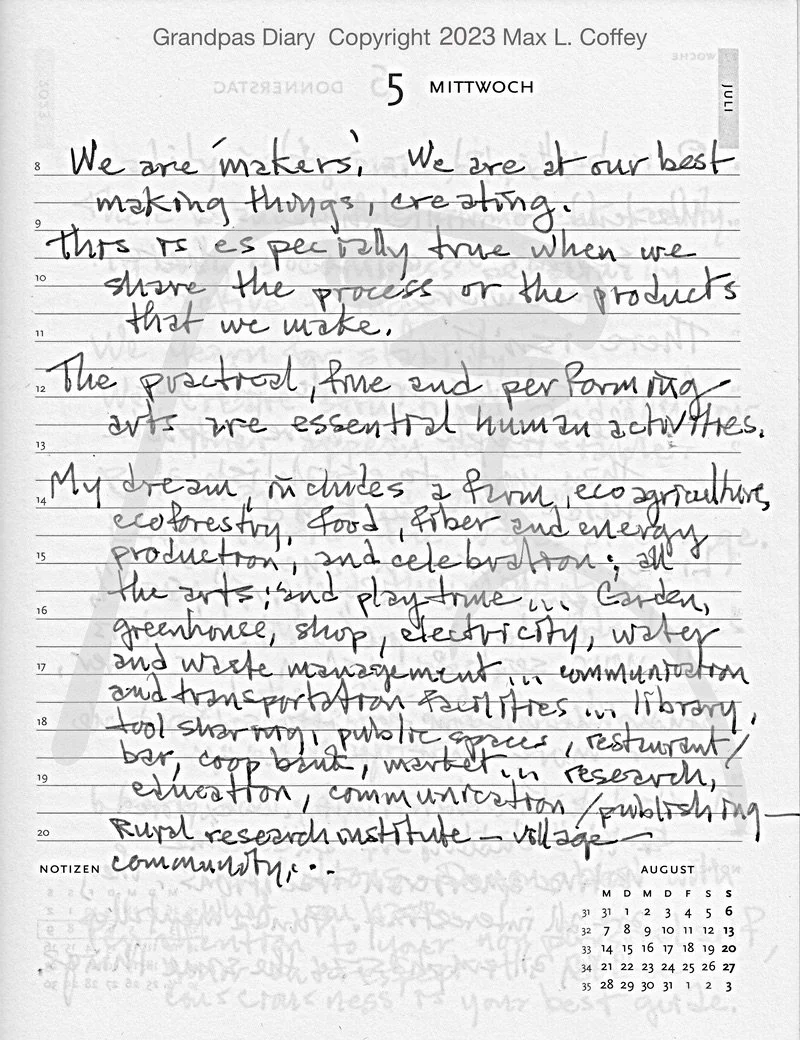 Grandpas Diary Copyright 2023 Max L. Coffey
5 MITTWOCH
JULI
8 We are 'makers'. We are at our best
making things, creating.
9 This is especially true when we
10 share the process or the products
11 that we make.
12 The practical, fine and performing
arts are essential human activities.
13
14 My dream, includes a farm, ecoagriculture,
ecoforestry, food, fiber and energy
15 production, and celebration; all
the arts; and playtime... Garden,
16 greenhouse, shop, electricity, water
17 and waste management... communication
and transportation facilities... library,
18 tool sharing, public spaces, restaurant/
bar, coop bank, market... research,
19 education, communication/publishing—
20 Rural research institute — village —
NOTIZEN community...
AUGUST
M D M D F S S
31 31 1 2 3 4 5 6
32 7 8 9 10 11 12 13
33 14 15 16 17 18 19 20
34 21 22 23 24 25 26 27
35 28 29 30 31 1 2 3